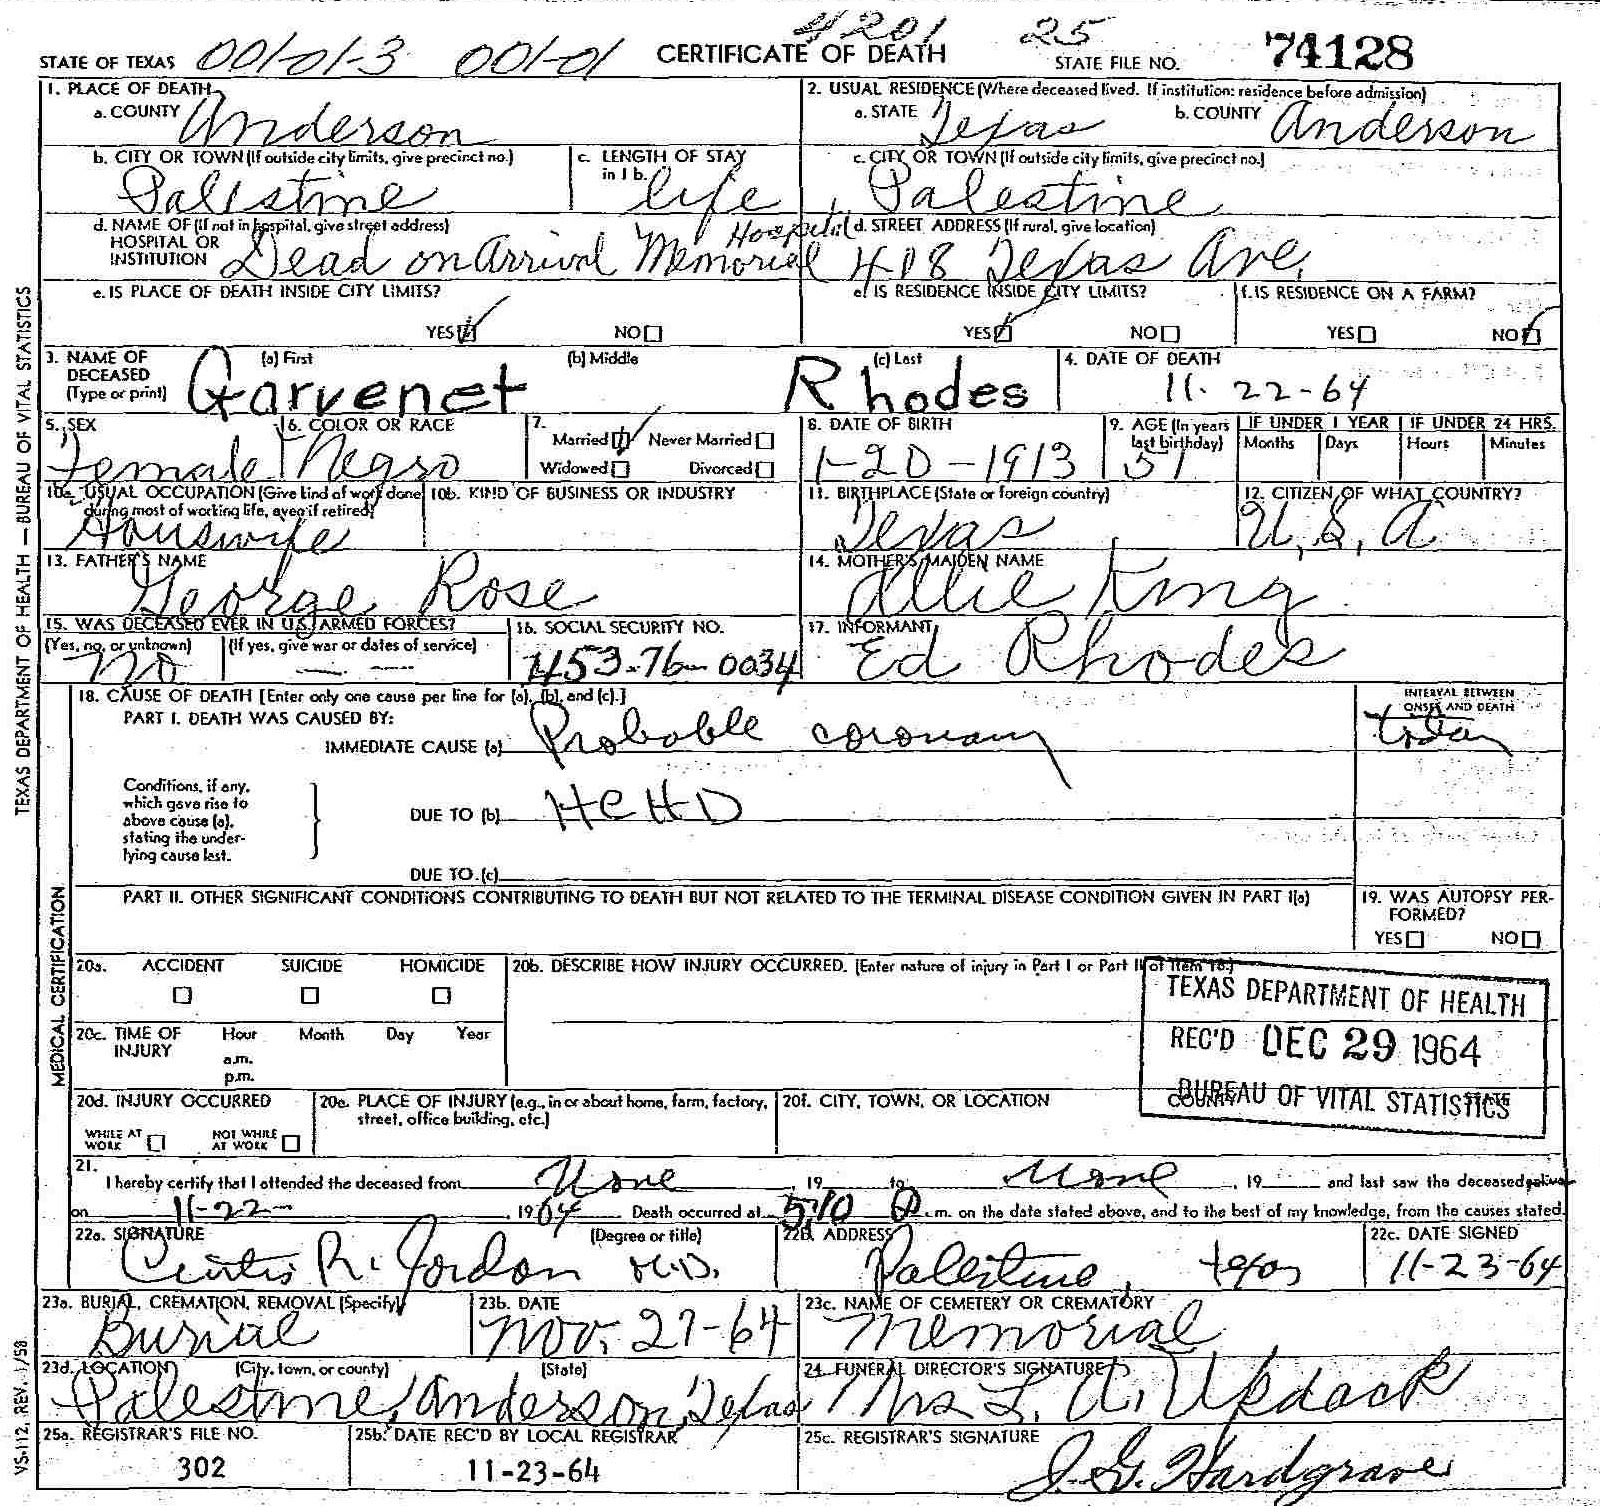 4201 25
STATE OF TEXAS 001-01-3 001-01 CERTIFICATE OF DEATH STATE FILE NO. 74128
1. PLACE OF DEATH
a. COUNTY Anderson
2. USUAL RESIDENCE (Where deceased lived. If institution: residence before admission)
a. STATE Texas b. COUNTY Anderson
b. CITY OR TOWN (If outside city limits, give precinct no.) Palestine
c. LENGTH OF STAY in 1b. life
c. CITY OR TOWN (If outside city limits, give precinct no.) Palestine
d. NAME OF (If not in hospital, give street address) HOSPITAL OR INSTITUTION Dead on Arrival Memorial Hospital
d. STREET ADDRESS (If rural, give location) 408 Texas Ave.
e. IS PLACE OF DEATH INSIDE CITY LIMITS?
YES NO
e. IS RESIDENCE INSIDE CITY LIMITS?
YES NO
f. IS RESIDENCE ON A FARM?
YES NO
3. NAME OF DECEASED (Type or print) (a) First (b) Middle (c) Last
Garvenet Rhodes
4. DATE OF DEATH 11-22-64
5. SEX Female
6. COLOR OR RACE Negro
7. Married Never Married
Widowed Divorced
8. DATE OF BIRTH 1-20-1913
9. AGE (In years last birthday) 51
IF UNDER 1 YEAR Months Days
IF UNDER 24 HRS. Hours Minutes
10a. USUAL OCCUPATION (Give kind of work done during most of working life, even if retired) Houswife
10b. KIND OF BUSINESS OR INDUSTRY
11. BIRTHPLACE (State or foreign country) Texas
12. CITIZEN OF WHAT COUNTRY? U.S.A
13. FATHER'S NAME George Rose
14. MOTHER'S MAIDEN NAME Allie King
15. WAS DECEASED EVER IN U.S. ARMED FORCES?
(Yes, no, or unknown) No (If yes, give war or dates of service) — —
16. SOCIAL SECURITY NO. 453-76-0034
17. INFORMANT Ed Rhodes
18. CAUSE OF DEATH [Enter only one cause per line for (a), (b), and (c).]
PART I. DEATH WAS CAUSED BY:
IMMEDIATE CAUSE (a) Probable coronary
INTERVAL BETWEEN ONSET AND DEATH today
Conditions, if any, which gave rise to above cause (a), stating the underlying cause last.
DUE TO (b) HCHD
DUE TO (c)
PART II. OTHER SIGNIFICANT CONDITIONS CONTRIBUTING TO DEATH BUT NOT RELATED TO THE TERMINAL DISEASE CONDITION GIVEN IN PART I(a)
19. WAS AUTOPSY PERFORMED?
YES NO
20a. ACCIDENT SUICIDE HOMICIDE
20b. DESCRIBE HOW INJURY OCCURRED. (Enter nature of injury in Part I or Part II of item 18.)
20c. TIME OF INJURY Hour Month Day Year
a.m.
p.m.
TEXAS DEPARTMENT OF HEALTH
REC'D DEC 29 1964
BUREAU OF VITAL STATISTICS
20d. INJURY OCCURRED
WHILE AT WORK NOT WHILE AT WORK
20e. PLACE OF INJURY (e.g., in or about home, farm, factory, street, office building, etc.)
20f. CITY, TOWN, OR LOCATION COUNTY STATE
21. I hereby certify that I attended the deceased from None, 19 to None, 19 and last saw the deceased alive
on 11-22-, 1964 Death occurred at 5:10 P.m. on the date stated above, and to the best of my knowledge, from the causes stated.
22a. SIGNATURE (Degree or title) Curtis R. Jordan M.D.
22b. ADDRESS Palestine, Texas
22c. DATE SIGNED 11-23-64
23a. BURIAL, CREMATION, REMOVAL (Specify) Burial
23b. DATE Nov. 27-64
23c. NAME OF CEMETERY OR CREMATORY Memorial
23d. LOCATION (City, town, or county) (State)
Palestine, Anderson, Texas
24. FUNERAL DIRECTOR'S SIGNATURE Mrs L. A. Updack
25a. REGISTRAR'S FILE NO. 302
25b. DATE REC'D BY LOCAL REGISTRAR 11-23-64
25c. REGISTRAR'S SIGNATURE J. G. Hardgrave
TEXAS DEPARTMENT OF HEALTH — BUREAU OF VITAL STATISTICS
MEDICAL CERTIFICATION
VS-112, REV. 1/58